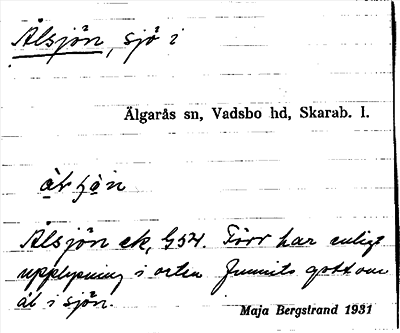 Ålsjön, sjö i
Älgarås sn, Vadsbo hd, Skarab. l.
Ålsjön ek, G54. Förr har enligt
upplysning i orten funnits gott om
ål i sjön.
Maja Bergstrand 1931